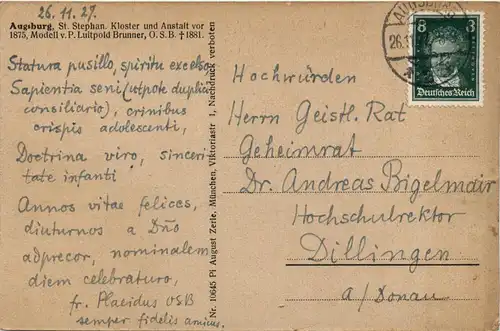 26.11.27.
Augsburg, St. Stephan. Kloster und Anstalt vor
1875, Modell v. P. Luitpold Brunner, O. S. B. †1881.
Statura pusillo, spiritu excelso,
Sapientia seni (utpote duplici
consiliario), crinibus
crispis adolescenti,
Doctrina viro, sinceri-
tate infanti
Annos vitae felices,
diuturnos a Dño
adprecor, nominalem
diem celebraturo,
fr. Placidus OSB
semper fidelis amicus.
Nr. 10645 Pi August Zerle, München, Viktoriastr 1, Nachdruck verboten
AUGSBURG
26.11
8 8
Deutsches Reich
Hochwürden
Herrn Geistl. Rat
Geheimrat
Dr. Andreas Bigelmair
Hochschulrektor
Dillingen
a/Donau